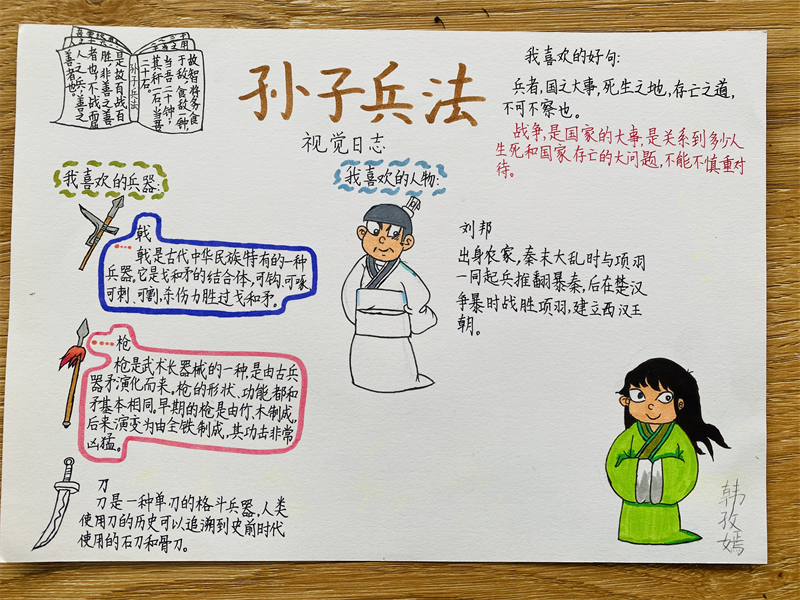 故智将务食
于敌,食敌一钟,
当吾二十钟;
其秆一石,当吾
二十石。
孙子兵法
是故百战百
胜,非善之善
者也;不战而屈
人之兵,善之
善者也。
孙子兵法
视觉日志
我喜欢的好句:
兵者,国之大事,死生之地,存亡之道,
不可不察也。
战争,是国家的大事,是关系到多少人
生死和国家存亡的大问题,不能不慎重对
待。
我喜欢的兵器:
戟
戟是古代中华民族特有的一种
兵器,它是戈和矛的结合体,可钩、可啄、
可刺、可割,杀伤力胜过戈和矛。
枪
枪是武术长器械的一种,是由古兵
器矛演化而来,枪的形状、功能都和
矛基本相同,早期的枪是由竹、木制成,
后来演变为由全铁制成,其功击非常
凶猛。
刀
刀是一种单刀的格斗兵器,人类
使用刀的历史可以追溯到史前时代
使用的石刀和骨刀。
我喜欢的人物:
刘邦
出身农家,秦末大乱时与项羽
一同起兵推翻暴秦,后在楚汉
争暴时战胜项羽,建立西汉王
朝。
韩孜嫣